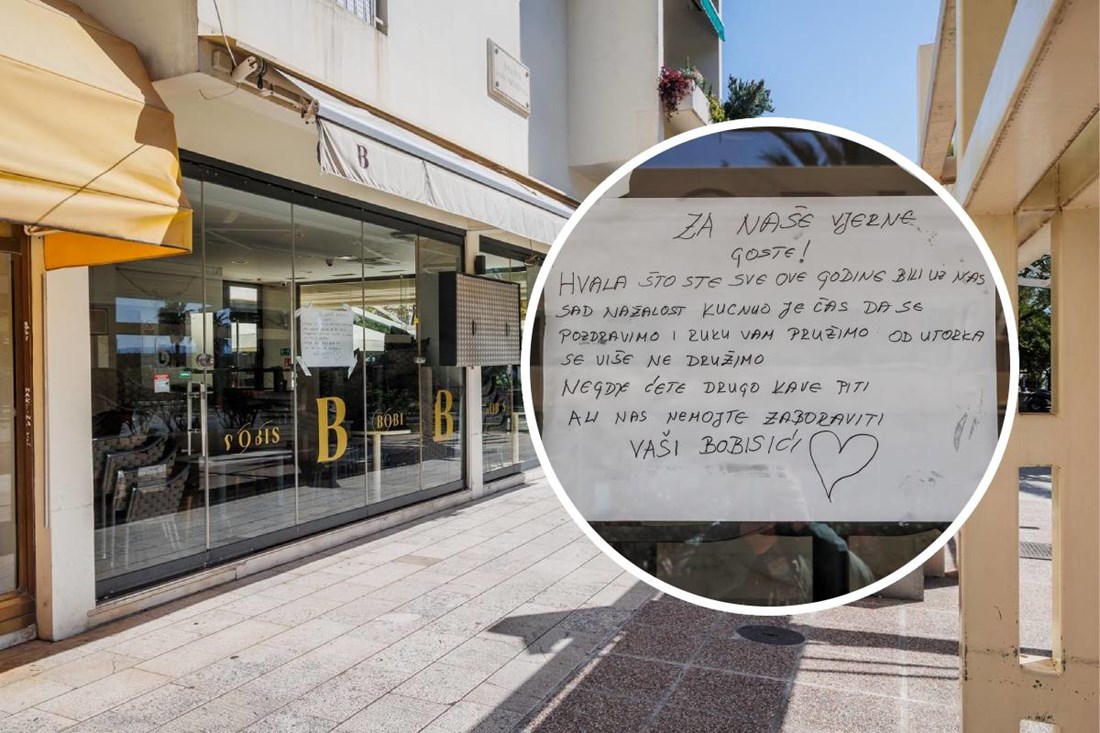 B
BOBIS
B
BOBI
B
ZA NAŠE VJERNE
GOSTE!
HVALA ŠTO STE SVE OVE GODINE BILI UZ NAS
SAD NAŽALOST KUCNUO JE ČAS DA SE
POZDRAVIMO I RUKU VAM PRUŽIMO OD UTORKA
SE VIŠE NE DRUŽIMO
NEGDJE ĆETE DRUGO KAVE PITI
ALI NAS NEMOJTE ZABORAVITI
VAŠI BOBISIĆI